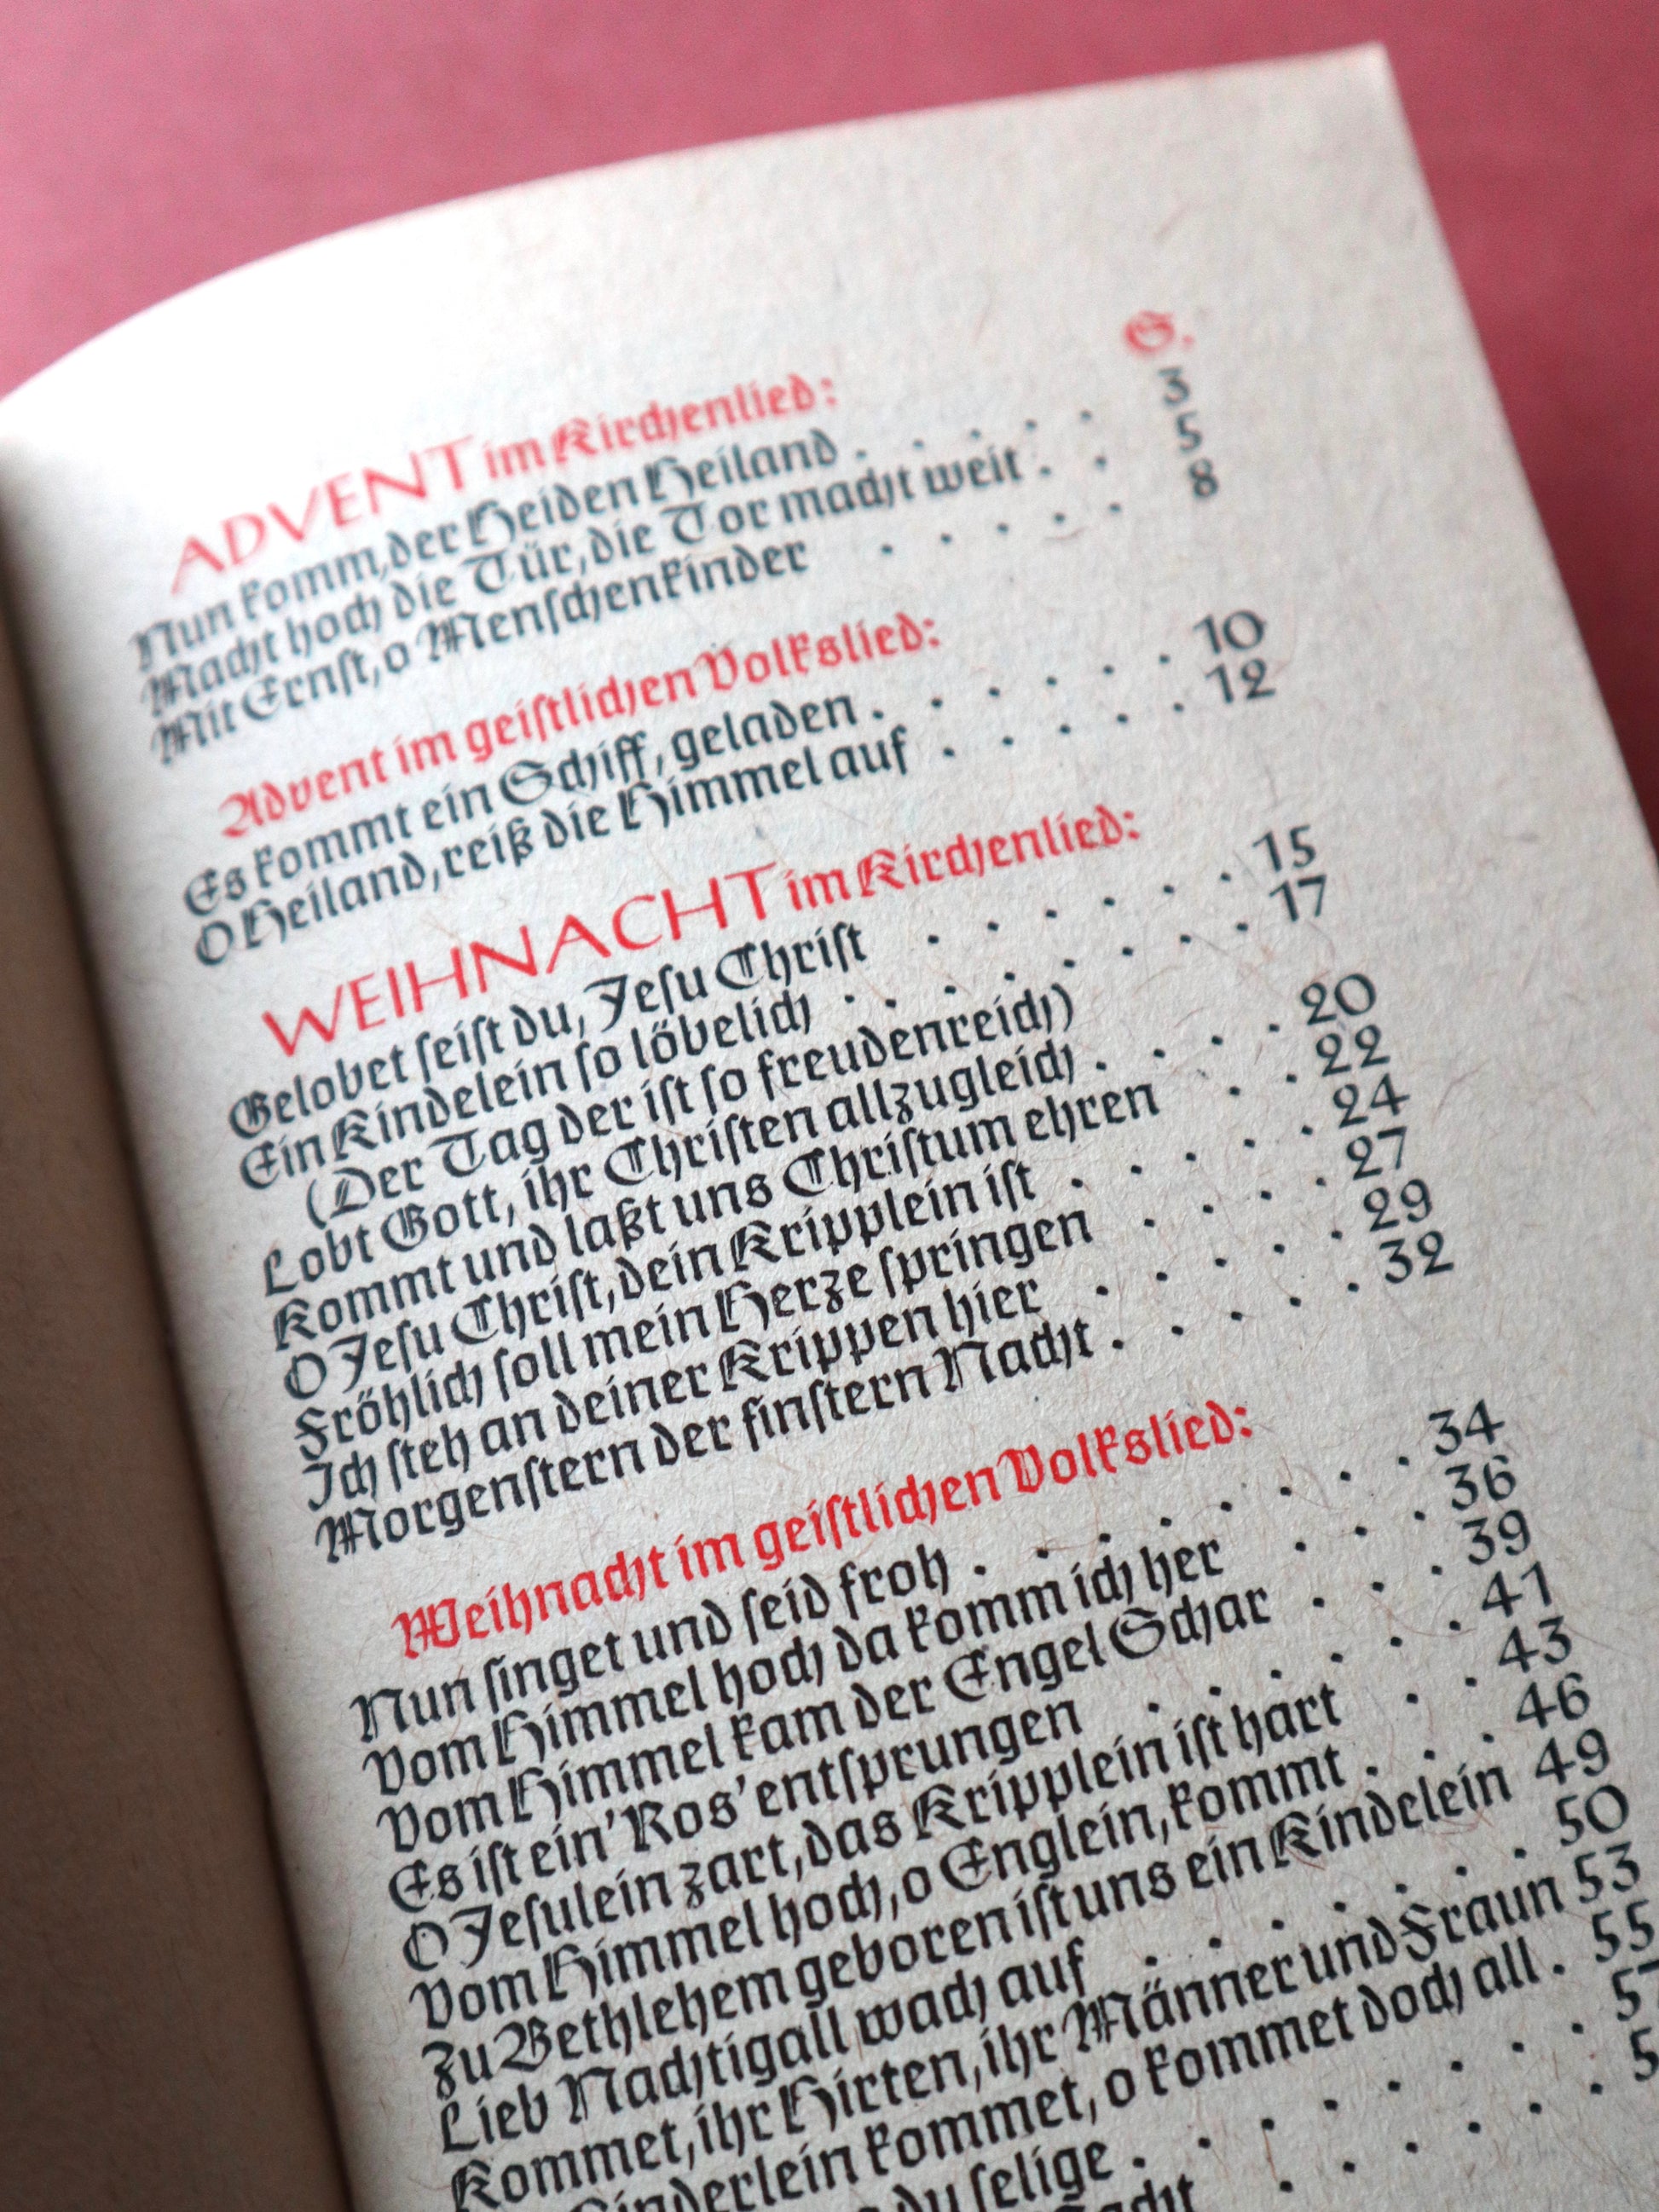 S.
ADVENT im Kirchenlied:
Nun komm, der Heiden Heiland . . . . . 3
Macht hoch die Tür, die Tor macht weit . . 5
Mit Ernst, o Menschenkinder . . . . . 8
Advent im geistlichen Volkslied:
Es kommt ein Schiff, geladen . . . . . . 10
O Heiland, reiß die Himmel auf . . . . . 12
WEIHNACHT im Kirchenlied:
Gelobet seist du, Jesu Christ . . . . . . 15
Ein Kindelein so löbelich . . . . . . . . 17
(Der Tag der ist so freudenreich)
Lobt Gott, ihr Christen allzugleich . . . . 20
Kommt und laßt uns Christum ehren . . 22
O Jesu Christ, dein Kripplein ist . . . . . 24
Fröhlich soll mein Herze springen . . . . 27
Ich steh an deiner Krippen hier . . . . . 29
Morgenstern der finstern Nacht . . . . . 32
Weihnacht im geistlichen Volkslied:
Nun singet und seid froh . . . . . . . . 34
Vom Himmel hoch da komm ich her . . . 36
Vom Himmel kam der Engel Schar . . . 39
Es ist ein' Ros' entsprungen . . . . . . 41
O Jesulein zart, das Kripplein ist hart . . 43
Vom Himmel hoch, o Englein, kommt . . . 46
Zu Bethlehem geboren ist uns ein Kindelein 49
Lieb Nachtigall wach auf . . . . . . . 50
Kommet, ihr Hirten, ihr Männer und Fraun 53
Kinderlein kommet, o kommet doch all . 55
du selige . . . . . . . .